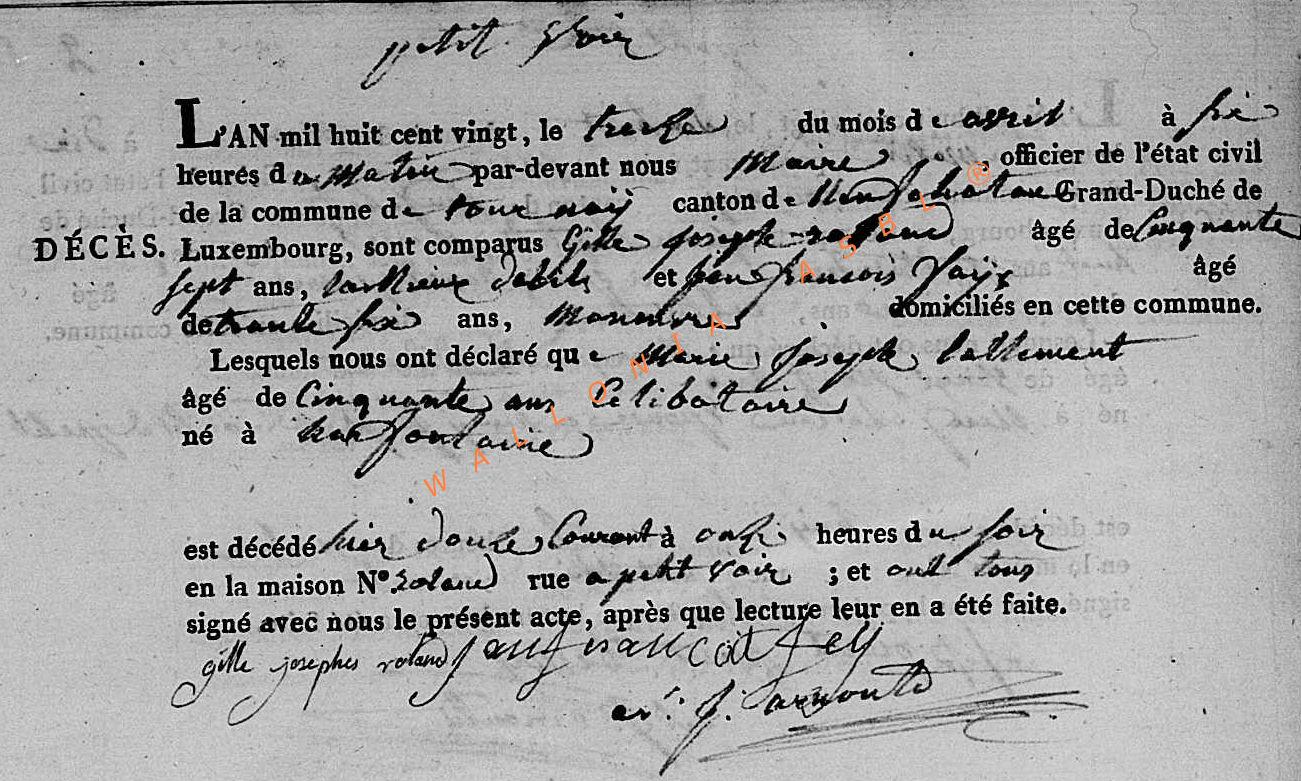 petit Voir
L'AN mil huit cent vingt, le treize du mois de avril à six
heures du Matin par-devant nous Maire, officier de l'état civil
de la commune de tournay canton de Neufchateau Grand-Duché de
DÉCÈS. Luxembourg, sont comparus Gille Joseph roland âgé de Cinquante
sept ans, et jean francois âgé
de trante six ans, domiciliés en cette commune.
Lesquels nous ont déclaré que Marie Joseph lallement
âgé de Cinquante ans Celibataire
né à harfontaine
est décédé hier douze Courant à onze heures du soir
en la maison N° Roland rue a petit Voir ; et ont tous
signé avec nous le présent acte, après que lecture leur en a été faite.
gille josephes roland
j. arnould
WALLONIA ASBL ®